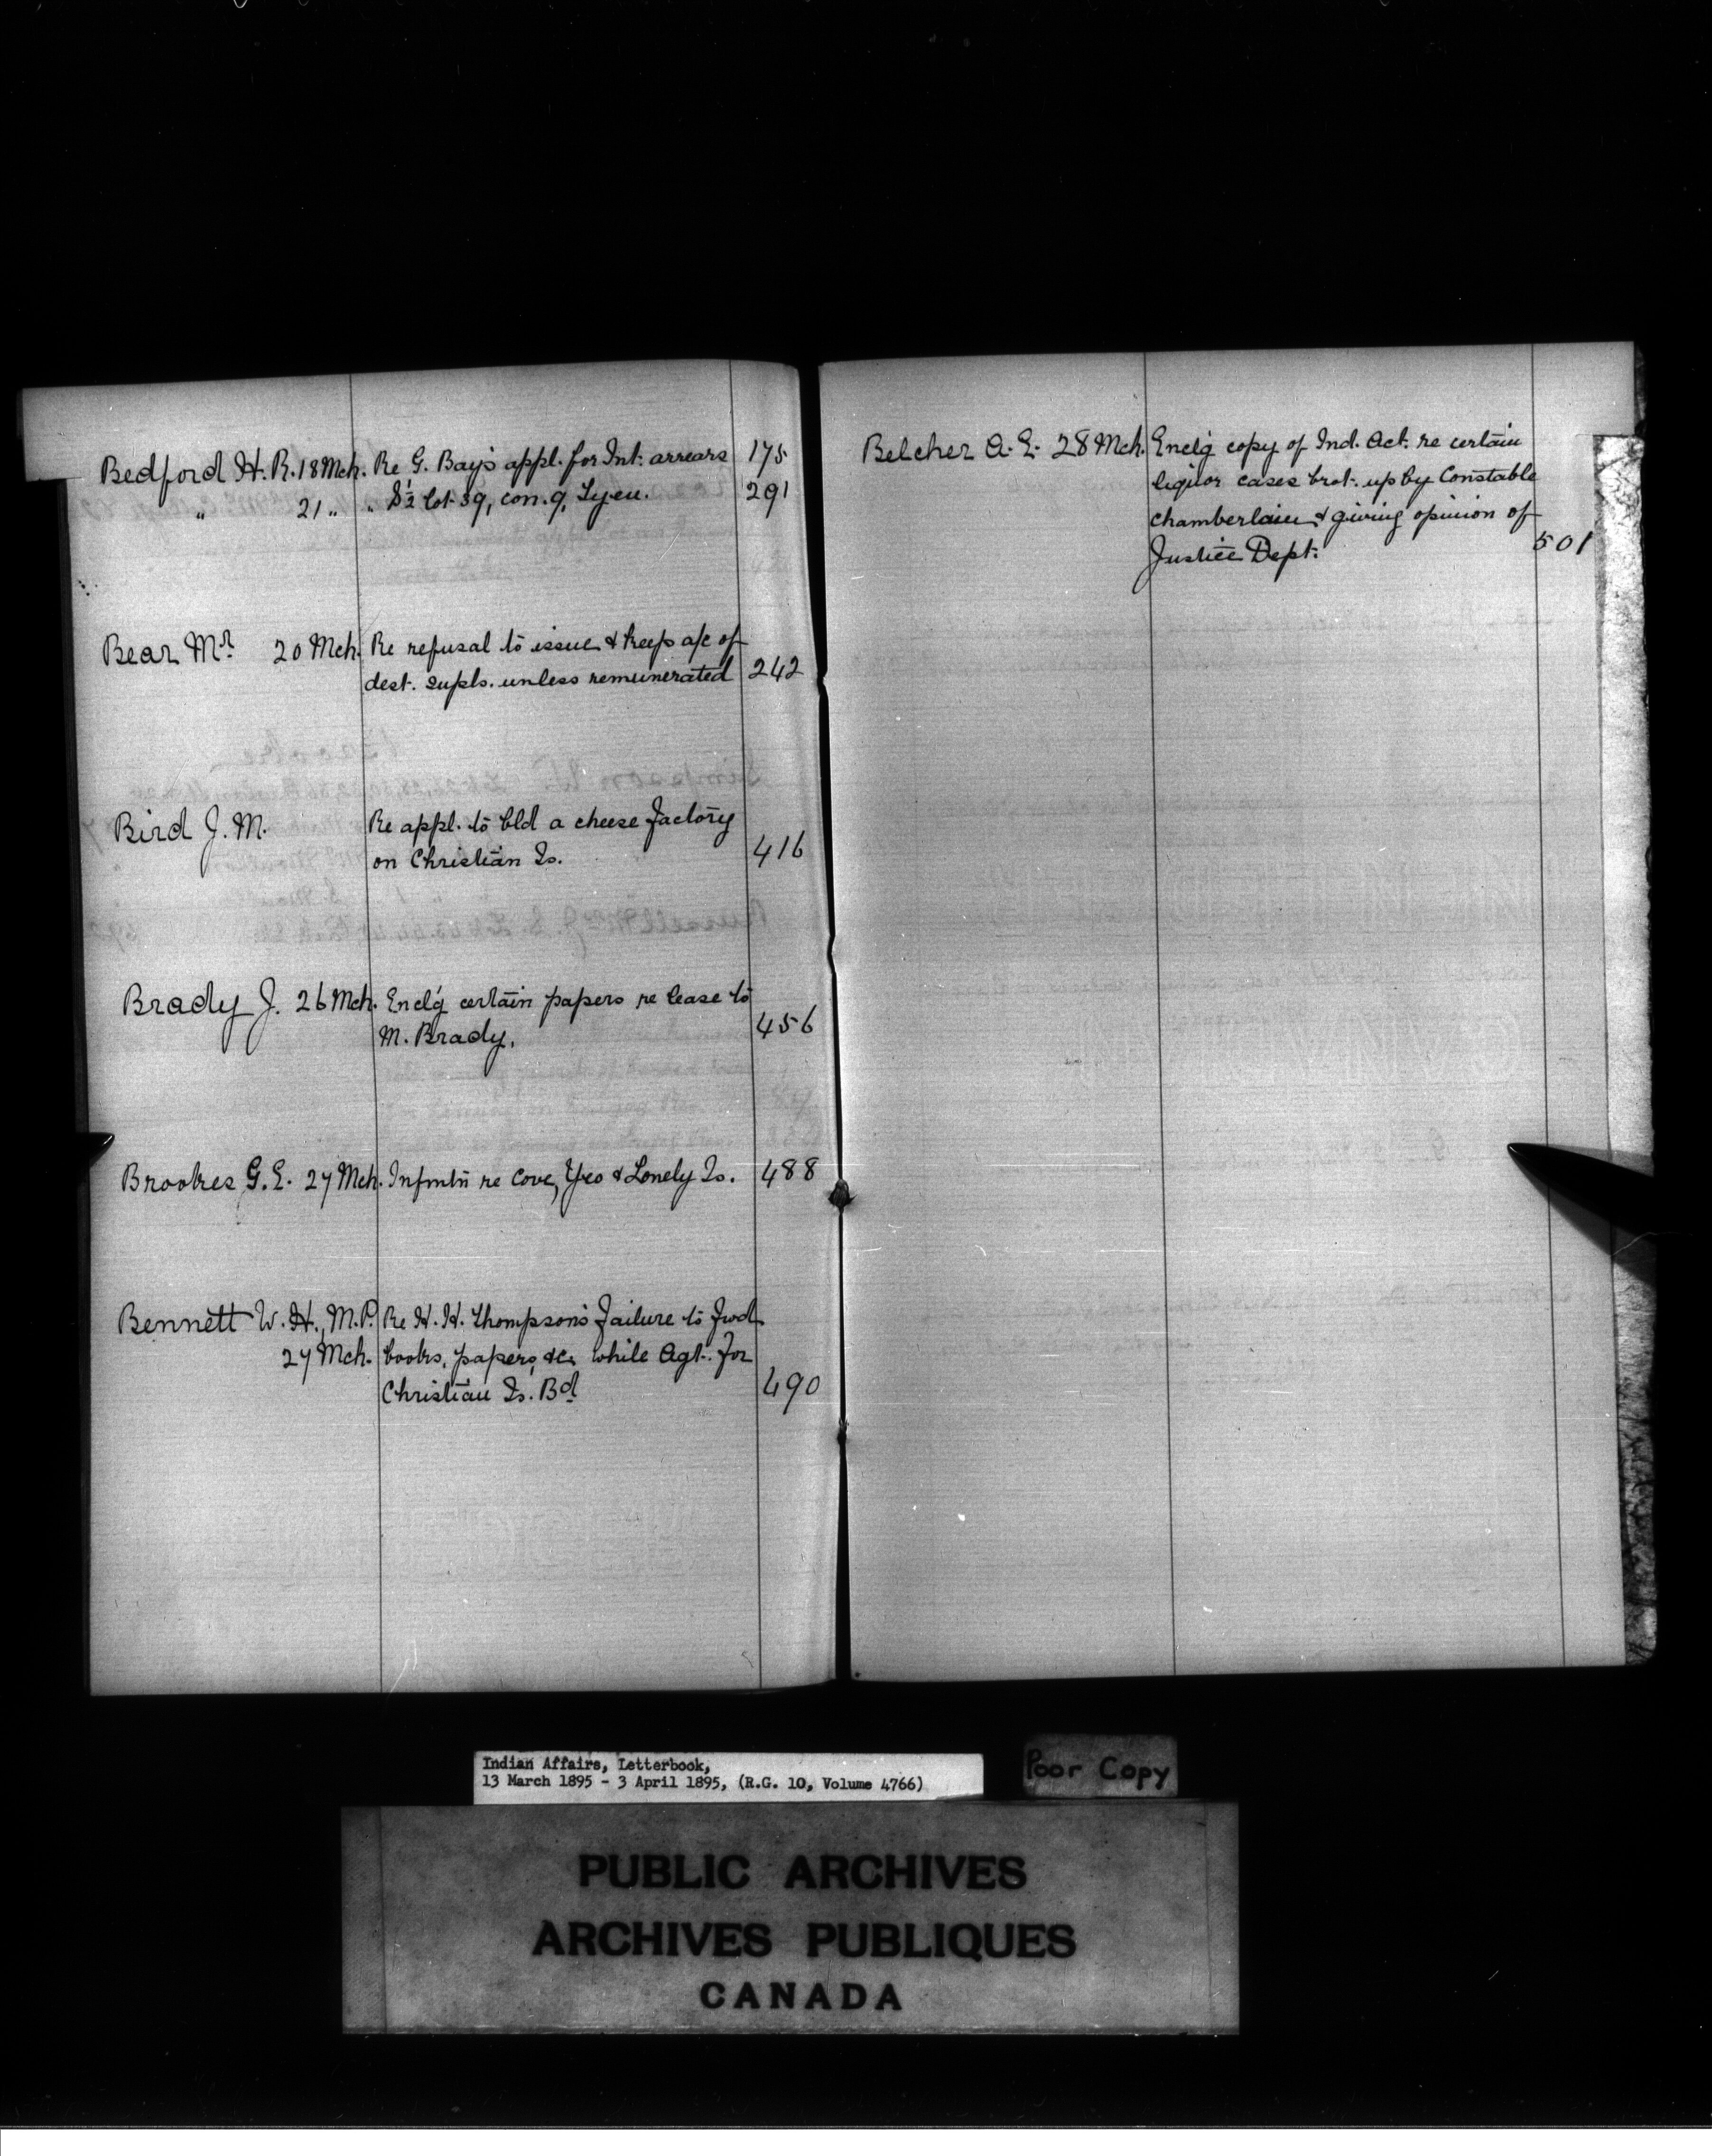 Bedford H. R. 18 Mch. Re G. Bay's appl. for Int. arrears 175
„ 21 „ „ S½ lot 39, con. 9, Hyeu. 291
Bear Mr. 20 Mch. Re refusal to issue & keep a/c of
dest. supls. unless remunerated 242
Bird J. M. Re appl. to bld a cheese factory
on Christian Is. 416
Brady J. 26 Mch. Encl'g certain papers re lease to
M. Brady. 456
Brookes G. E. 27 Mch. Infmtn re Cove, Yeo & Lonely Is. 488
Bennett W. H., M.P. Re H. H. Thompson's failure to fwd.
27 Mch. books, papers, &c. while Agt. for
Christian Is. Bd. 490
Belcher A. E. 28 Mch. Encl'g copy of Ind. Act. re certain
liquor cases brot. up by Constable
Chamberlain & giving opinion of
Justice Dept. 501
Indian Affairs, Letterbook,
13 March 1895 - 3 April 1895, (R.G. 10, Volume 4766)
Poor Copy
PUBLIC ARCHIVES
ARCHIVES PUBLIQUES
CANADA